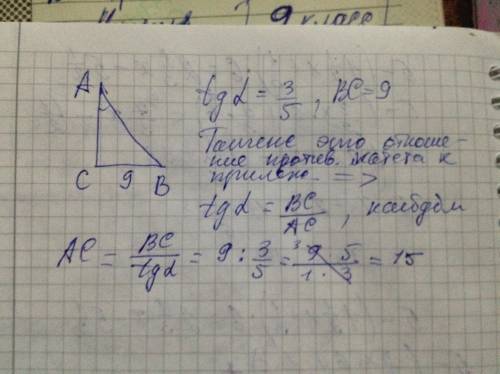 9 класс
A
C 9 B
tg α = 3/5, BC=9
Тангенс это отноше-
ние против. катета к
прилежа. =>
tg α = BC/AC, найдём
AC = BC/tg α = 9 : 3/5 = 9 · 5/1 · 3 = 15